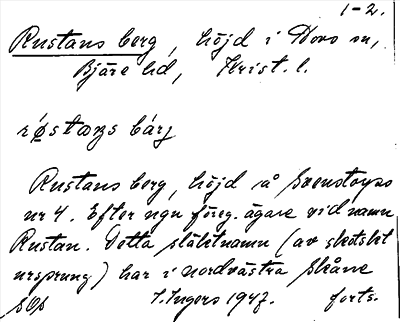 1-2.
Rustans berg, höjd i Hovs sn,
Bjäre hd, Krist. l.
Rustans berg, höjd å Svenstorps
nr 4. Efter ngn föreg. ägare vid namn
Rustan. Detta släktnamn (av skotskt
ursprung) har i nordvästra Skåne
S. Ingers 1947. forts.